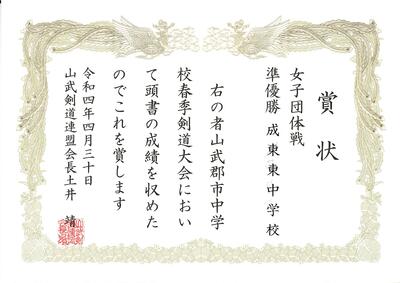 賞状
女子団体戦
準優勝 成東東中学校
右の者山武郡市中学
校春季剣道大会におい
て頭書の成績を収めた
のでこれを賞します
令和四年四月三十日
山武剣道連盟会長土井 靖